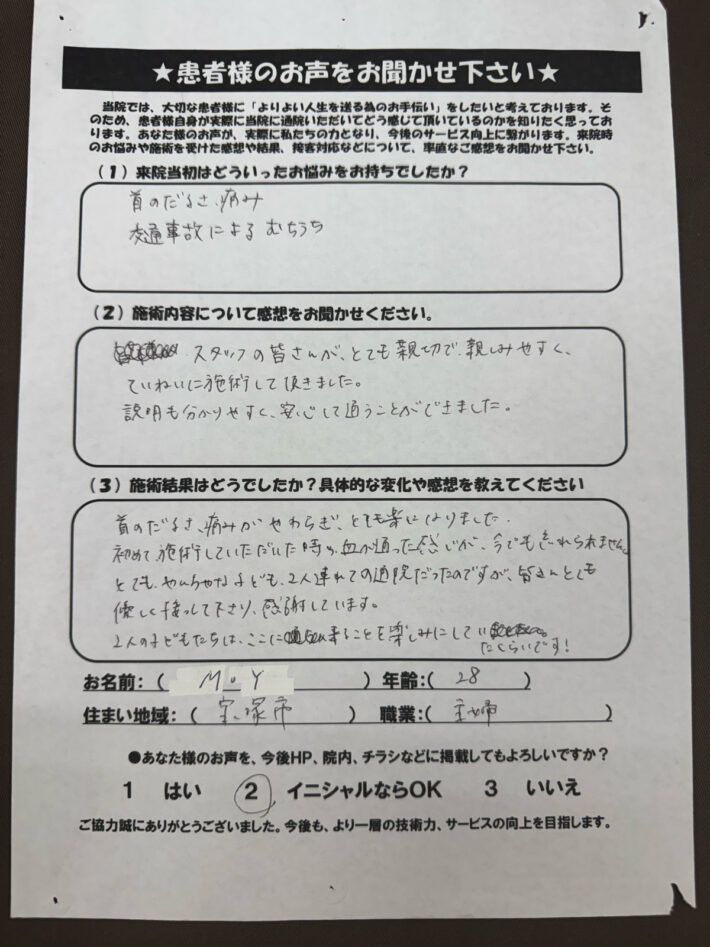 ★患者様のお声をお聞かせ下さい★
当院では、大切な患者様に「よりよい人生を送る為のお手伝い」をしたいと考えております。そ
のため、患者様自身が実際に当院に通院いただいてどう感じて頂いているのかを知りたく思ってお
ります。あなた様のお声が、実際に私たちの力となり、今後のサービス向上に繋がります。来院時
のお悩みや施術を受けた感想や結果、接客対応などについて、率直なご感想をお聞かせ下さい。
（１）来院当初はどういったお悩みをお持ちでしたか？
首のだるさ、痛み
交通事故によるむちうち
（２）施術内容について感想をお聞かせください。
スタッフの皆さんが、とても親切で、親しみやすく、
ていねいに施術して頂きました。
説明も分かりやすく、安心して通うことができました。
（３）施術結果はどうでしたか？具体的な変化や感想を教えてください
首のだるさ、痛みがやわらぎ、とても楽になりました。
初めて施術していただいた時の血が通った感じが、今でも忘れられません。
とても、やんちゃな子ども、2人連れての通院だったのですが、皆さんとても
優しく接して下さり、感謝しています。
2人の子どもたちは、ここに来ることを楽しみにしてい
たくらいです！
お名前：（ M・Y ） 年齢：（ 28 ）
住まい地域：（ 宝塚市 ） 職業：（ 主婦 ）
●あなた様のお声を、今後HP、院内、チラシなどに掲載してもよろしいですか？
1 はい 2 イニシャルならOK 3 いいえ
ご協力誠にありがとうございました。今後も、より一層の技術力、サービスの向上を目指します。